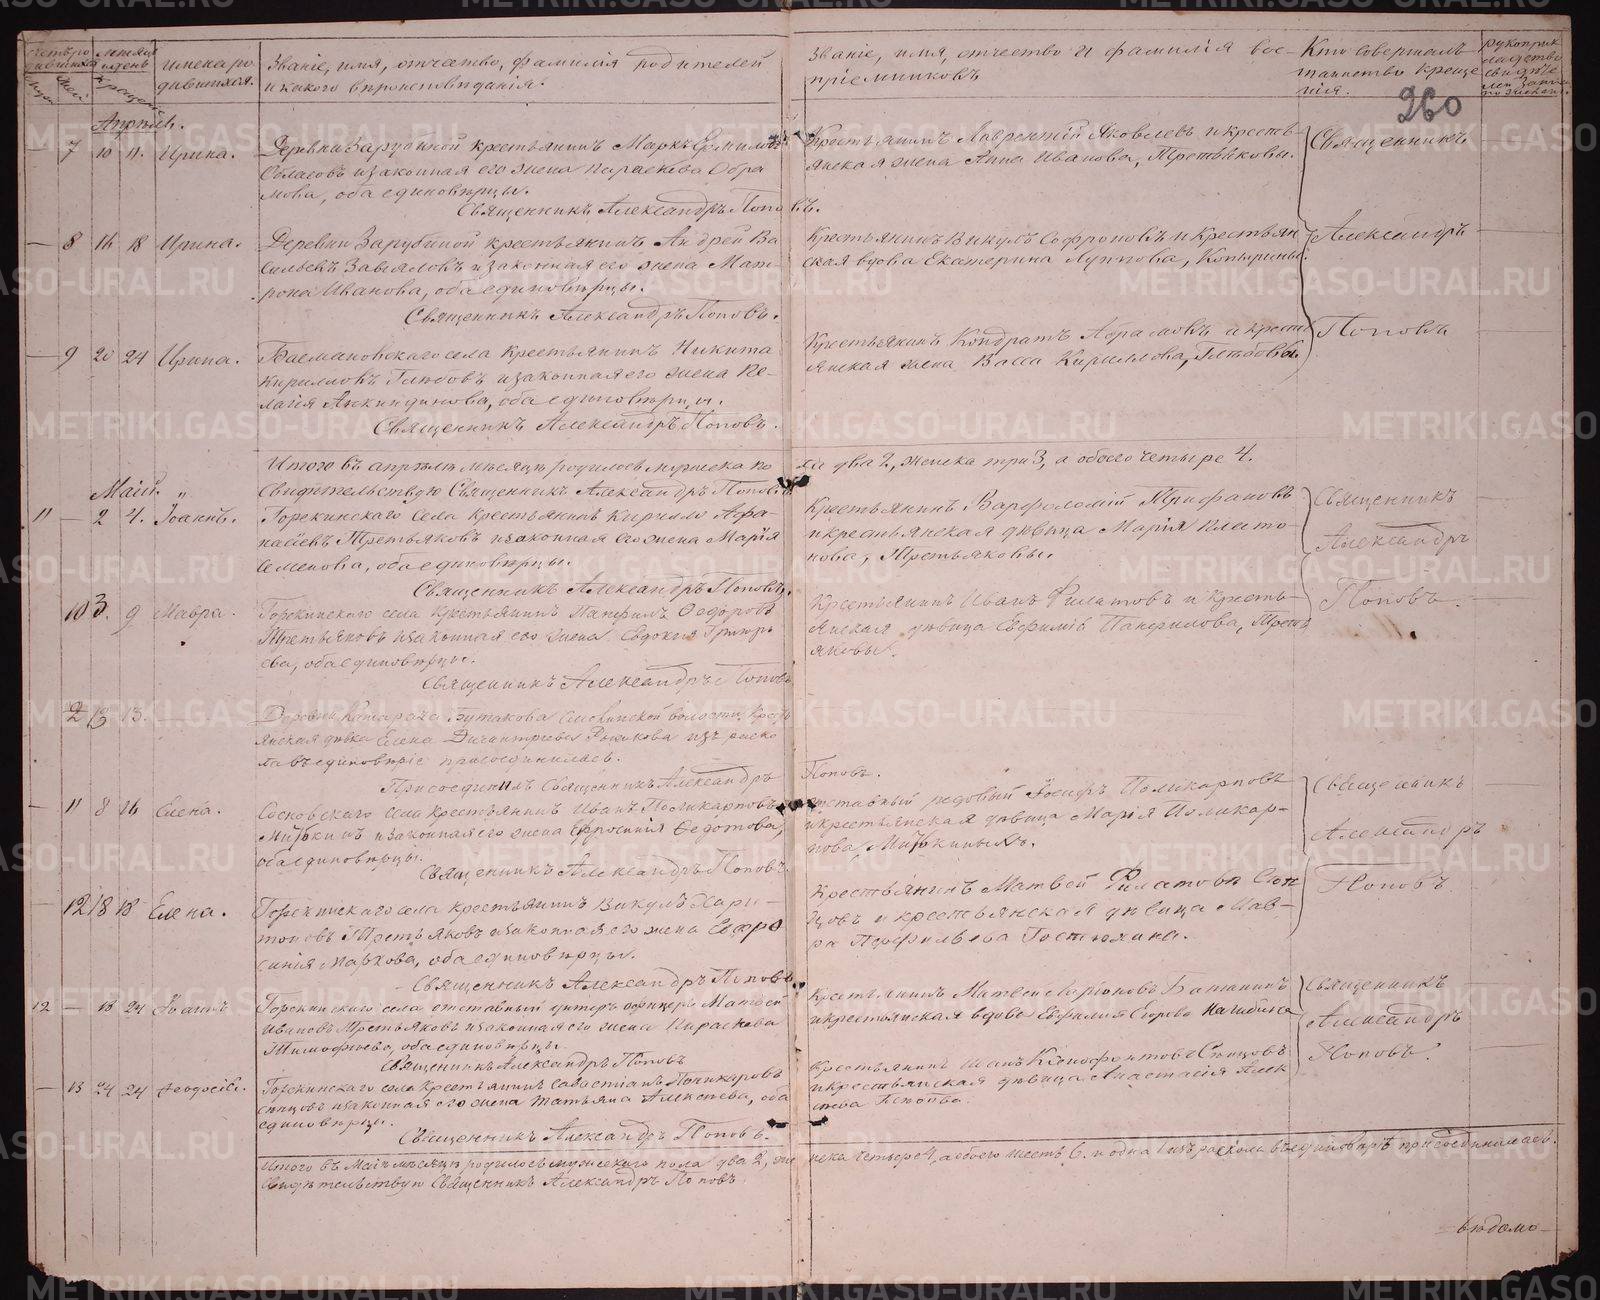 Счетъ родившихся
Мужеска
Женска
Месяцъ и день
Крещенія
Имена родившихся.
Званіе, имя, отчество, фамилія родителей
и какого вѣроисповѣданія.
Званіе, имя, отчество и фамилія вос-
пріемниковъ
Кто совершалъ
таинство креще
нія.
260
Апрѣль.
— 7 10 11. Ирина.
Деревни Зарубиной крестьянинъ Маркъ
и законная его жена Параскева Обра
мова, оба единовѣрцы.
Священникъ Александръ Поповъ.
Крестьянинъ Лаврентій Яковлевъ и кресть-
янская жена Анна Иванова, Третьяковы.
Священникъ
— 8 16 18 Ирина.
Деревни Зарубиной крестьянинъ Андрей Ва
сильевъ Завьяловъ и законная его жена Мат-
рона Иванова, оба единовѣрцы.
Священникъ Александръ Поповъ.
Крестьянинъ Викулъ Софроновъ и крестьян
ская вдова Екатерина Луппова, Копырины.
Александръ
— 9 20 24 Ирина.
села крестьянинъ Никита
Кирилловъ Глѣбовъ и законная его жена Пе-
лагія Анкиндинова, оба единовѣрцы.
Священникъ Александръ Поповъ.
Крестьянинъ Кондратъ Абрамовъ и кресть
янская жена Васса Кириллова, Глѣбовы.
Поповъ
Итого въ апрѣлѣ мѣсяцѣ родилось мужеска по
ла два 2, женска три 3, а обоего четыре 4.
Свидѣтельствую Священникъ Александръ Поповъ
Маій. „
11 — 2 4. Іоаннъ.
Горскинскаго села крестьянинъ Кирилло Афа-
насіевъ Третьяковъ и законная его жена Марія
Семенова, оба единовѣрцы.
Священникъ Александръ Поповъ.
Крестьянинъ Варфоломій Трифановъ
и крестьянская дѣвица Марія Плато-
нова, Третьяковы.
Священникъ
Александръ
Поповъ.
10 3. 9 Мавра.
Горскинскаго села крестьянинъ Панфилъ Ѳедоровъ
Третьяковъ и законная его жена Евдокия Григорь
ева, оба единовѣрцы.
Священникъ Александръ Поповъ
Крестьянинъ Иванъ Филатовъ и кресть-
янская дѣвица Евфимія Панфилова, Треть
яковы.
2 13 13. —
Деревни Бутакова волости, крест
янская дѣвка Елена Рыжкова изъ раско
ла въ единовѣріе присоединилась.
Присоединилъ Священникъ Александръ
Поповъ.
— 11 8 16 Елена.
Сосновскаго села крестьянинъ Иванъ Поликарповъ
и законная его жена Ефросинія Ѳедотова,
оба единовѣрцы.
Священникъ Александръ Поповъ.
отставный редовый Іосифъ Поликарповъ
и крестьянская дѣвица Марія Поликар-
пова,
Священникъ
Александръ
Поповъ
— 12 18 18 Елена.
Горскинскаго села крестьянинъ Викулъ Хари-
тоновъ Третьяковъ и законная его жена Ефро
синія Маркова, оба единовѣрцы.
Священникъ Александръ Поповъ
Крестьянинъ Матвей Филатовъ
и крестьянская дѣвица Мав-
ра Гостюхина.
12 — 18 24 Іоаннъ
Горскинскаго села отставный унтеръ офицеръ Матвей
Ивановъ Третьяковъ и законная его жена Параскева
Тимофѣева, оба единовѣрцы.
Священникъ Александръ Поповъ
Крестьянинъ Матвей Ларіоновъ
и крестьянская вдова Нагибина
Священникъ
Александръ
Поповъ.
— 13 24 24 Ѳеодосія.
Горскинскаго села крестьянинъ Савостіанъ Поликарповъ
и законная его жена Татьяна Алексѣева, оба
единовѣрцы.
Священникъ Александръ Поповъ.
Крестьянинъ Иванъ Ксенофонтовъ
и крестьянская дѣвица Анастасія Алек
сѣева
Итого въ Маіи мѣсяцѣ родилось мужескаго пола два 2, же
нска четыре 4, а обоего шесть 6. и одна 1 изъ раскола въ единовѣріе присоединилась.
Свидѣтельствую Священникъ Александръ Поповъ.
—вѣдомо—
METRIKI.GASO-URAL.RU